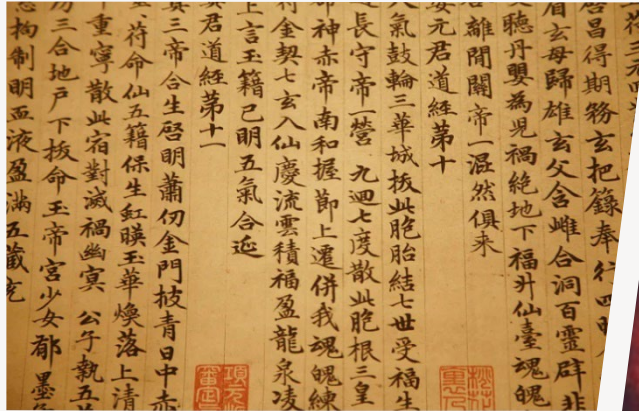 啓昌得期務玄把籙奉行四明
眉玄母歸雄玄父含雌合洞百靈辟非
聽丹嬰為兒禍絕地下福升仙臺魂魄
離閒關帝一混然俱来
元君道經第十
氣鼓輪三華城拔此胞胎結七世受福生
長守帝一營 九迴七度散此胞根三皇
命神赤帝南和握節上遷併我魂魄練
符金契七玄入仙慶流雲積福盈龍泉凌
上言玉籍已明五氣合延
真君道經第十一
真三帝合生啓明蕭仞金門披青日中赤
符命仙五籍保生紅暎玉華煥落上清
重寧散此宿對滅禍幽冥 公子執五
三合地戶下拔命玉帝宮少女郁墨
拘制明血液盈滿五藏充